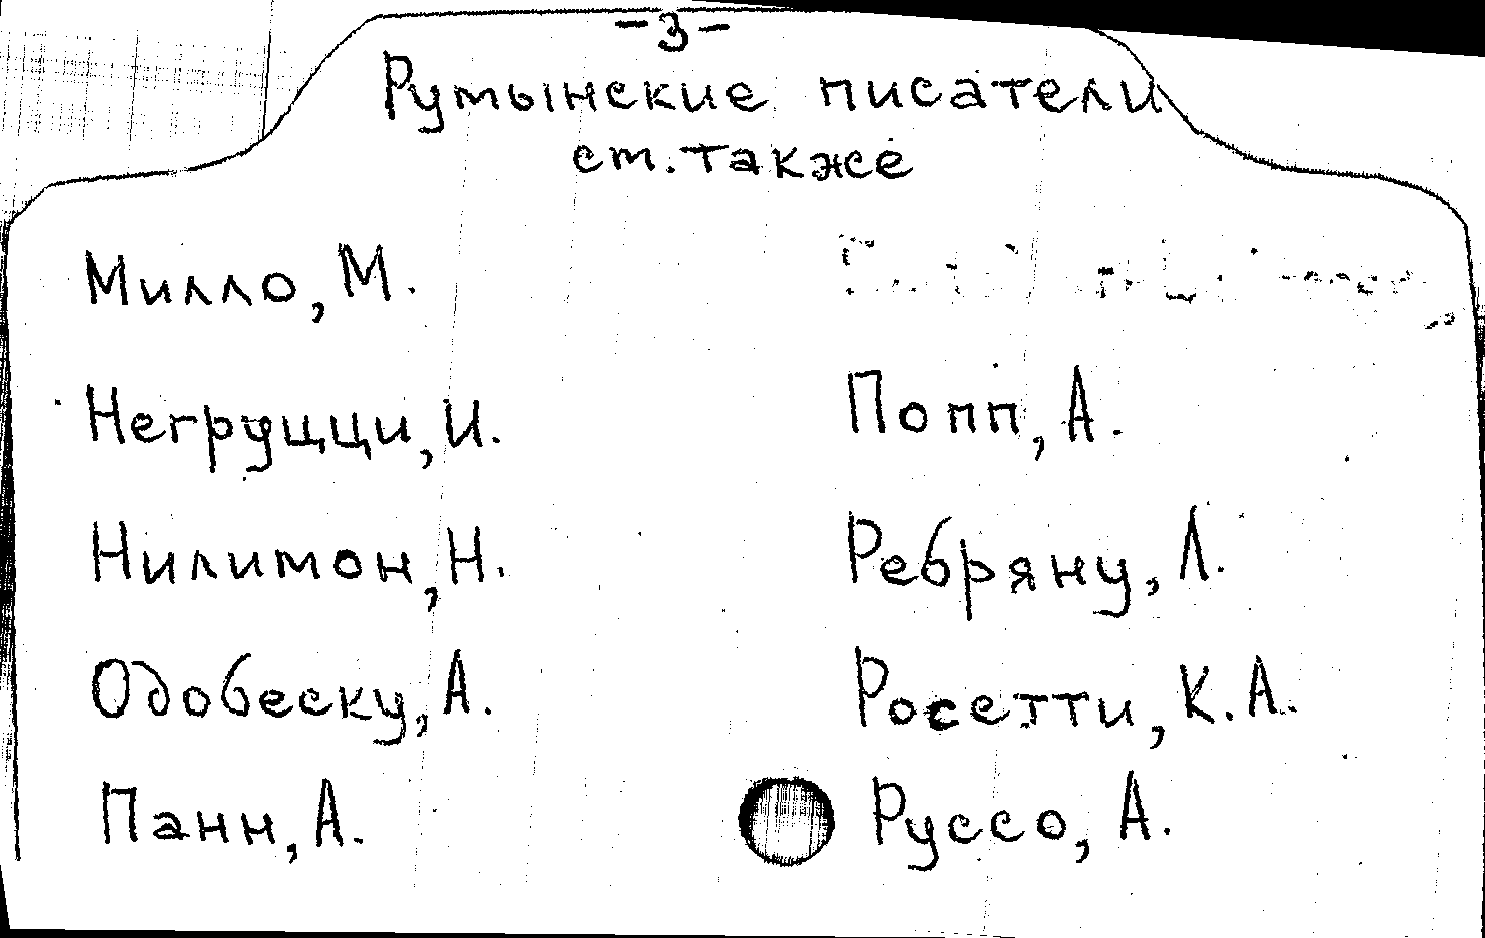 -3-
Румынские писатели
см. также
Милло, М.
Негруцци, И.
Нилимон, Н.
Одобеску, А.
Панн, А.
Попп, А.
Ребряну, Л.
Росетти, К.А.
Руссо, А.